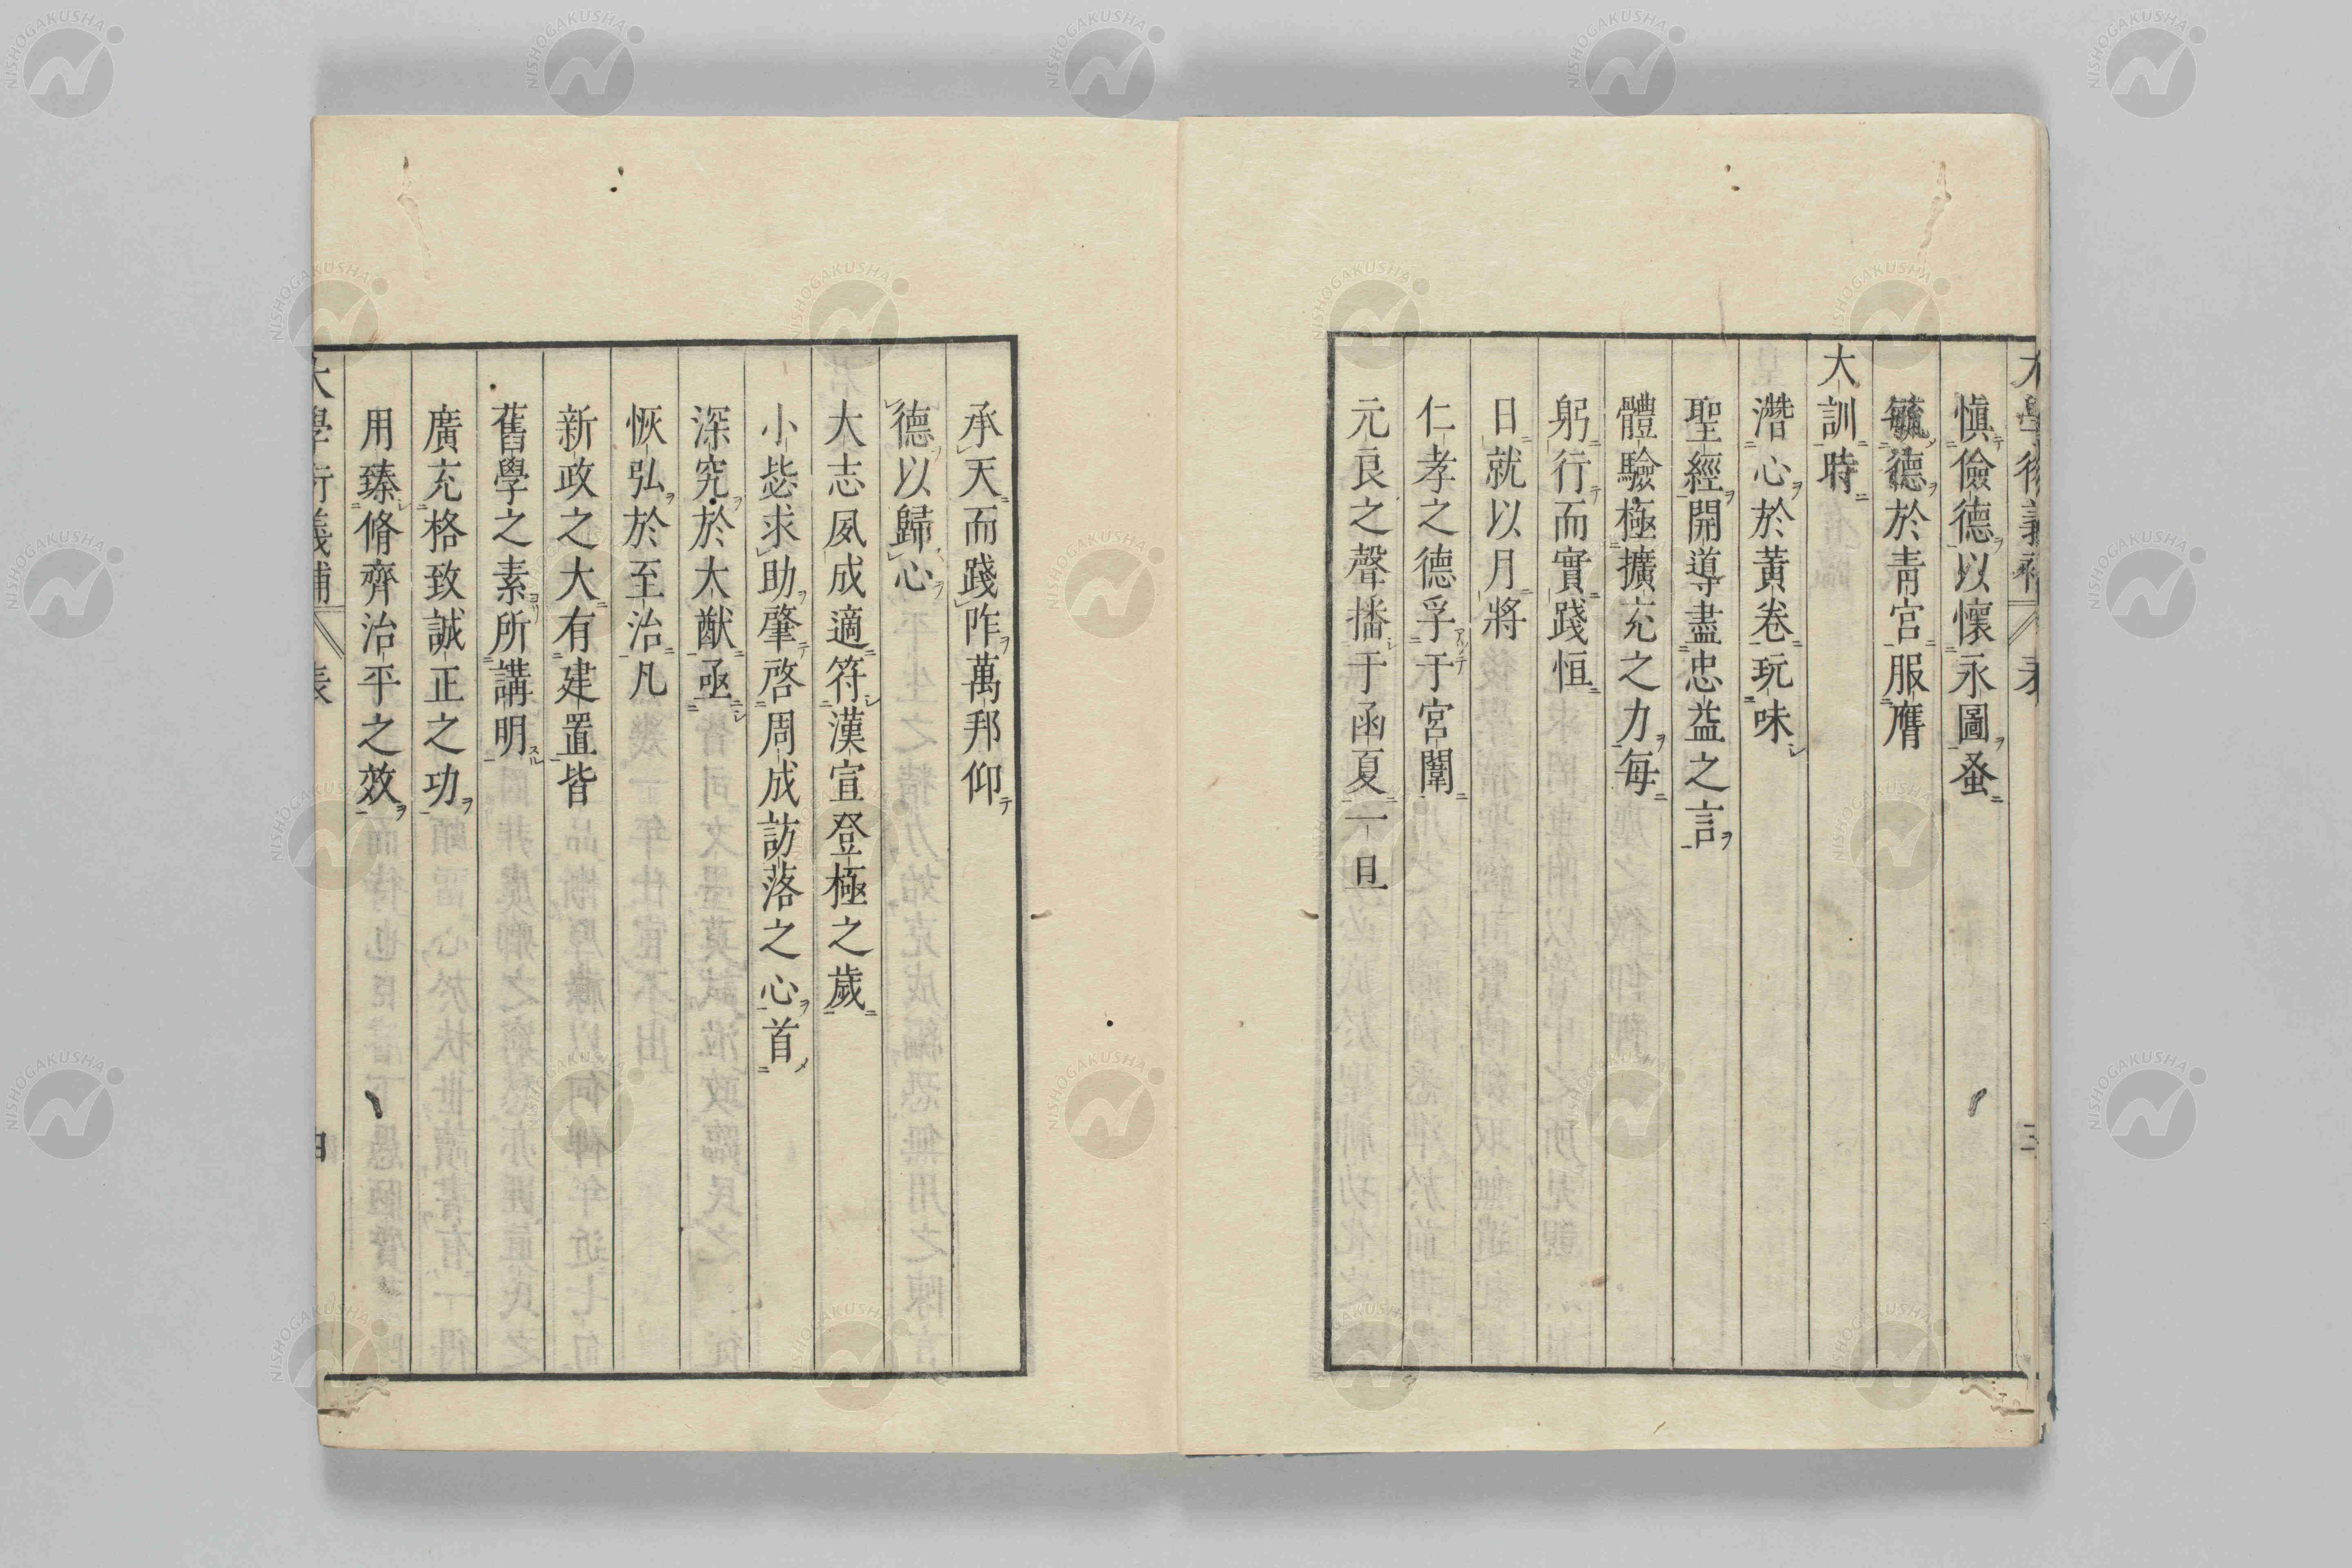 大學衍義補 表 三
慎儉德以懷永圖蚤
毓德於青宮服膺
大訓時
潛心於黃卷玩味
聖經開導盡忠益之言
體驗極擴充之力每
躬行而實踐恒
日就以月將
仁孝之德孚于宮闈
元良之聲播于函夏一旦
承天而踐阼萬邦仰
德以歸心
大志夙成適符漢宣登極之歲
小毖求助肇啓周成訪落之心首
深究於大猷亟
恢弘於至治凡
新政之大有建置皆
舊學之素所講明
廣充格致誠正之功
用臻脩齊治平之效
大學衍義補 表 四